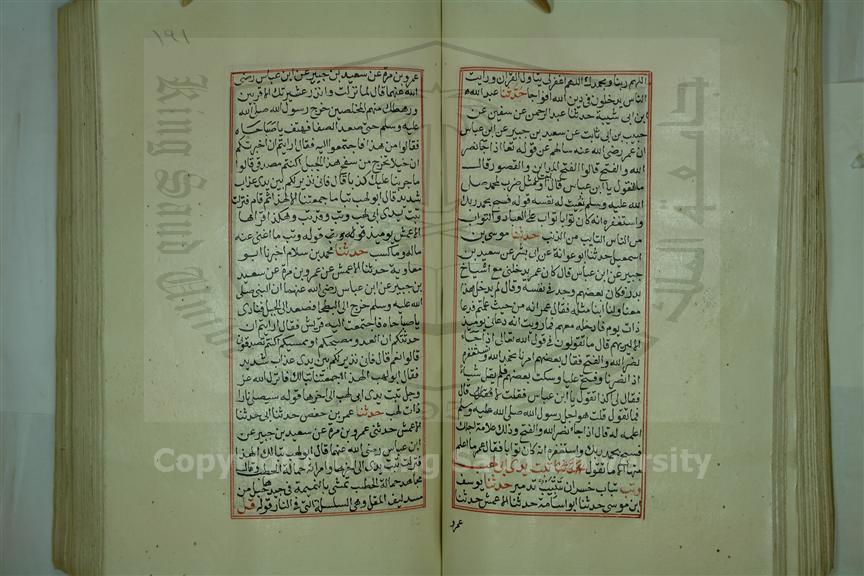 ١٩١
اللهم ربنا وبحمدك اللهم اغفر لي يتاول القران ورايت
الناس يدخلون في دين الله افواجا حدثنا عبد الله
ابن ابي شيبة حدثنا عبد الرحمن عن سفين عن
حبيب بن ابي ثابت عن سعيد بن جبير عن ابن عباس
ان عمر رضي الله عنه سالهم عن قوله تعا اذا جا نصر
الله والفتح قالوا فتح المداين والقصور قال
ما تقول يا ابن عباس قال اجل او مثل ضرب لمحمد صلى
الله عليه وسلم نعيت له نفسه قوله فسبح بحمد ربك
واستغفره انه كان توابا تواب على العباد والتواب
من الناس التايب من الذنب حدثنا موسى بن
اسمعيل حدثنا ابو عوانة عن ابي بشر عن سعيد بن
جبير عن ابن عباس قال كان عمر يدخلني مع اشياخ
بدر فكان بعضهم وجد في نفسه وقال لم يدخل هذا
معنا ولنا ابنا مثله فقال عمر انه من حيث علمتم فدعا
ذات يوم فادخله معهم فما رويت انه دعاني يوميذ
الا ليريهم قال ما تقولون في قول الله تعالى اذا جاء
نصر الله والفتح فقال بعضهم امرنا نحمد الله ونستغفره
اذا نصرنا وفتح علينا وسكت بعضهم فلم يقل شيا
فقال لي اكذا تقول يا ابن عباس فقلت لا قال
فما تقول قلت هو اجل رسول الله صلى الله عليه وسلم
اعلمه له قال اذا جا نصر الله والفتح وذلك علامة اجلك
فسبح بحمد ربك واستغفره انه كان توابا فقال عمر ما اعلم
منها الا ما تقول تبت يدا ابي لهب
وتب تباب خسران تتبيب تدمير حدثنا يوسف
ابن موسى حدثنا ابو اسامة حدثنا الاعمش حدثنا
عمرو
عمرو بن مرة عن سعيد بن جبير عن ابن عباس رضي
الله عنهما قال لما نزلت وانذر عشيرتك الاقربين
ورهطك منهم المخلصين خرج رسول الله صلى الله
عليه وسلم حتى صعد الصفا فهتف يا صباحاه
فقالوا من هذا فاجتمعوا اليه فقال ارايتم ان اخبرتكم
ان خيلا تخرج من سفح هذا الجبل اكنتم مصدقي قالوا
ما جربنا عليك كذبا قال فاني نذير لكم بين يدي عذاب
شديد قال ابو لهب تبا ما جمعتنا الا لهذا ثم قام فنزلت
تبت يدا ابي لهب وتب وقد تب وهكذا قراها
الاعمش يوميذ قوله وتب ما اغنى عنه
ماله وما كسب حدثنا محمد بن سلام اخبرنا ابو
معاوية حدثنا الاعمش عن عمرو بن مرة عن سعيد
بن جبير عن ابن عباس رضي الله عنهما ان النبي صلى
الله عليه وسلم خرج الى البطحا فصعد الى الجبل فنادى
يا صباحاه فاجتمعت اليه قريش فقال ارايتم ان
حدثتكم ان العدو مصبحكم او ممسيكم اكنتم تصدقوني
قالوا نعم قال فاني نذير لكم بين يدي عذاب شديد
فقال ابو لهب الهذا جمعتنا تبا لك فانزل الله عز
وجل تبت يدا ابي لهب الى اخرها قوله سيصلى نارا
ذات لهب حدثنا عمر بن حفص حدثنا ابي حدثنا
الاعمش حدثني عمرو بن مرة عن سعيد بن جبير عن
ابن عباس رضي الله عنهما قال ابو لهب تبا لك الهذا
فنزلت تبت يدا ابي لهب الى اخرها وامراته حمالة الحطب وقال
مجاهد حمالة الحطب تمشي بالنميمة في جيدها حبل من
مسد ليف المقل وهي السلسلة التي في النار قوله قل
King Saud University
Copyright © King Saud University